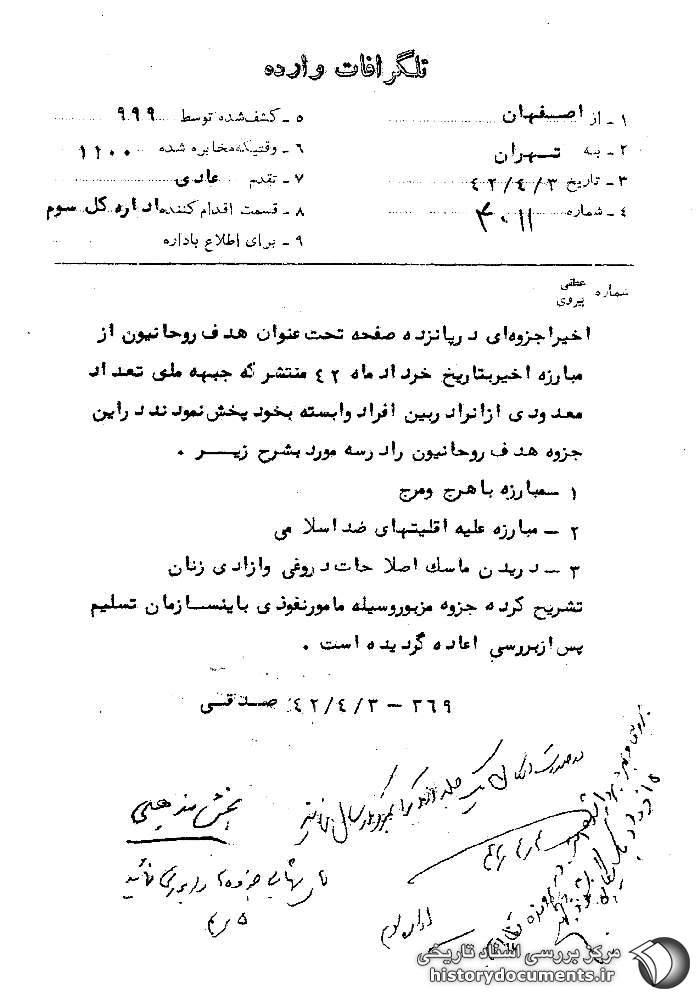 تلگرافات وارده
۱ - از اصفهان
۲ - به تهران
۳ - تاریخ ۴۲/۴/۳
۴ - شماره ۴۰۱۱
۵ - کشف شده توسط ۹۹۹
۶ - وقتیکه مخابره شده ۱۱۰۰
۷ - تقدم عادی
۸ - قسمت اقدام کننده اداره کل سوم
۹ - برای اطلاع باداره
شماره عطفی پیروی
اخیرا جزوه‌ای در پانزده صفحه تحت عنوان هدف روحانیون از
مبارزه اخیر بتاریخ خرداد ماه ۴۲ منتشر که جبهه ملی تعداد
معدودی از انرا در بین افراد وابسته بخود پخش نمودند در این
جزوه هدف روحانیون را در سه مورد بشرح زیر .
۱ - مبارزه با هرج و مرج
۲ - مبارزه علیه اقلیتهای ضد اسلامی
۳ - دریدن ماسک اصلاحات دروغی و ازادی زنان
تشریح کرده جزوه مزبور وسیله مامور نفوذی باینسازمان تسلیم
پس از بررسی اعاده گردیده است .
۳۶۹ - ۴۲/۴/۳ صدقی
در صورت امکان یک جلد از
بخش مذهبی
جزوه را بررسی نمائید
اداره سوم
مرکز بررسی اسناد تاریخی
historydocuments.ir